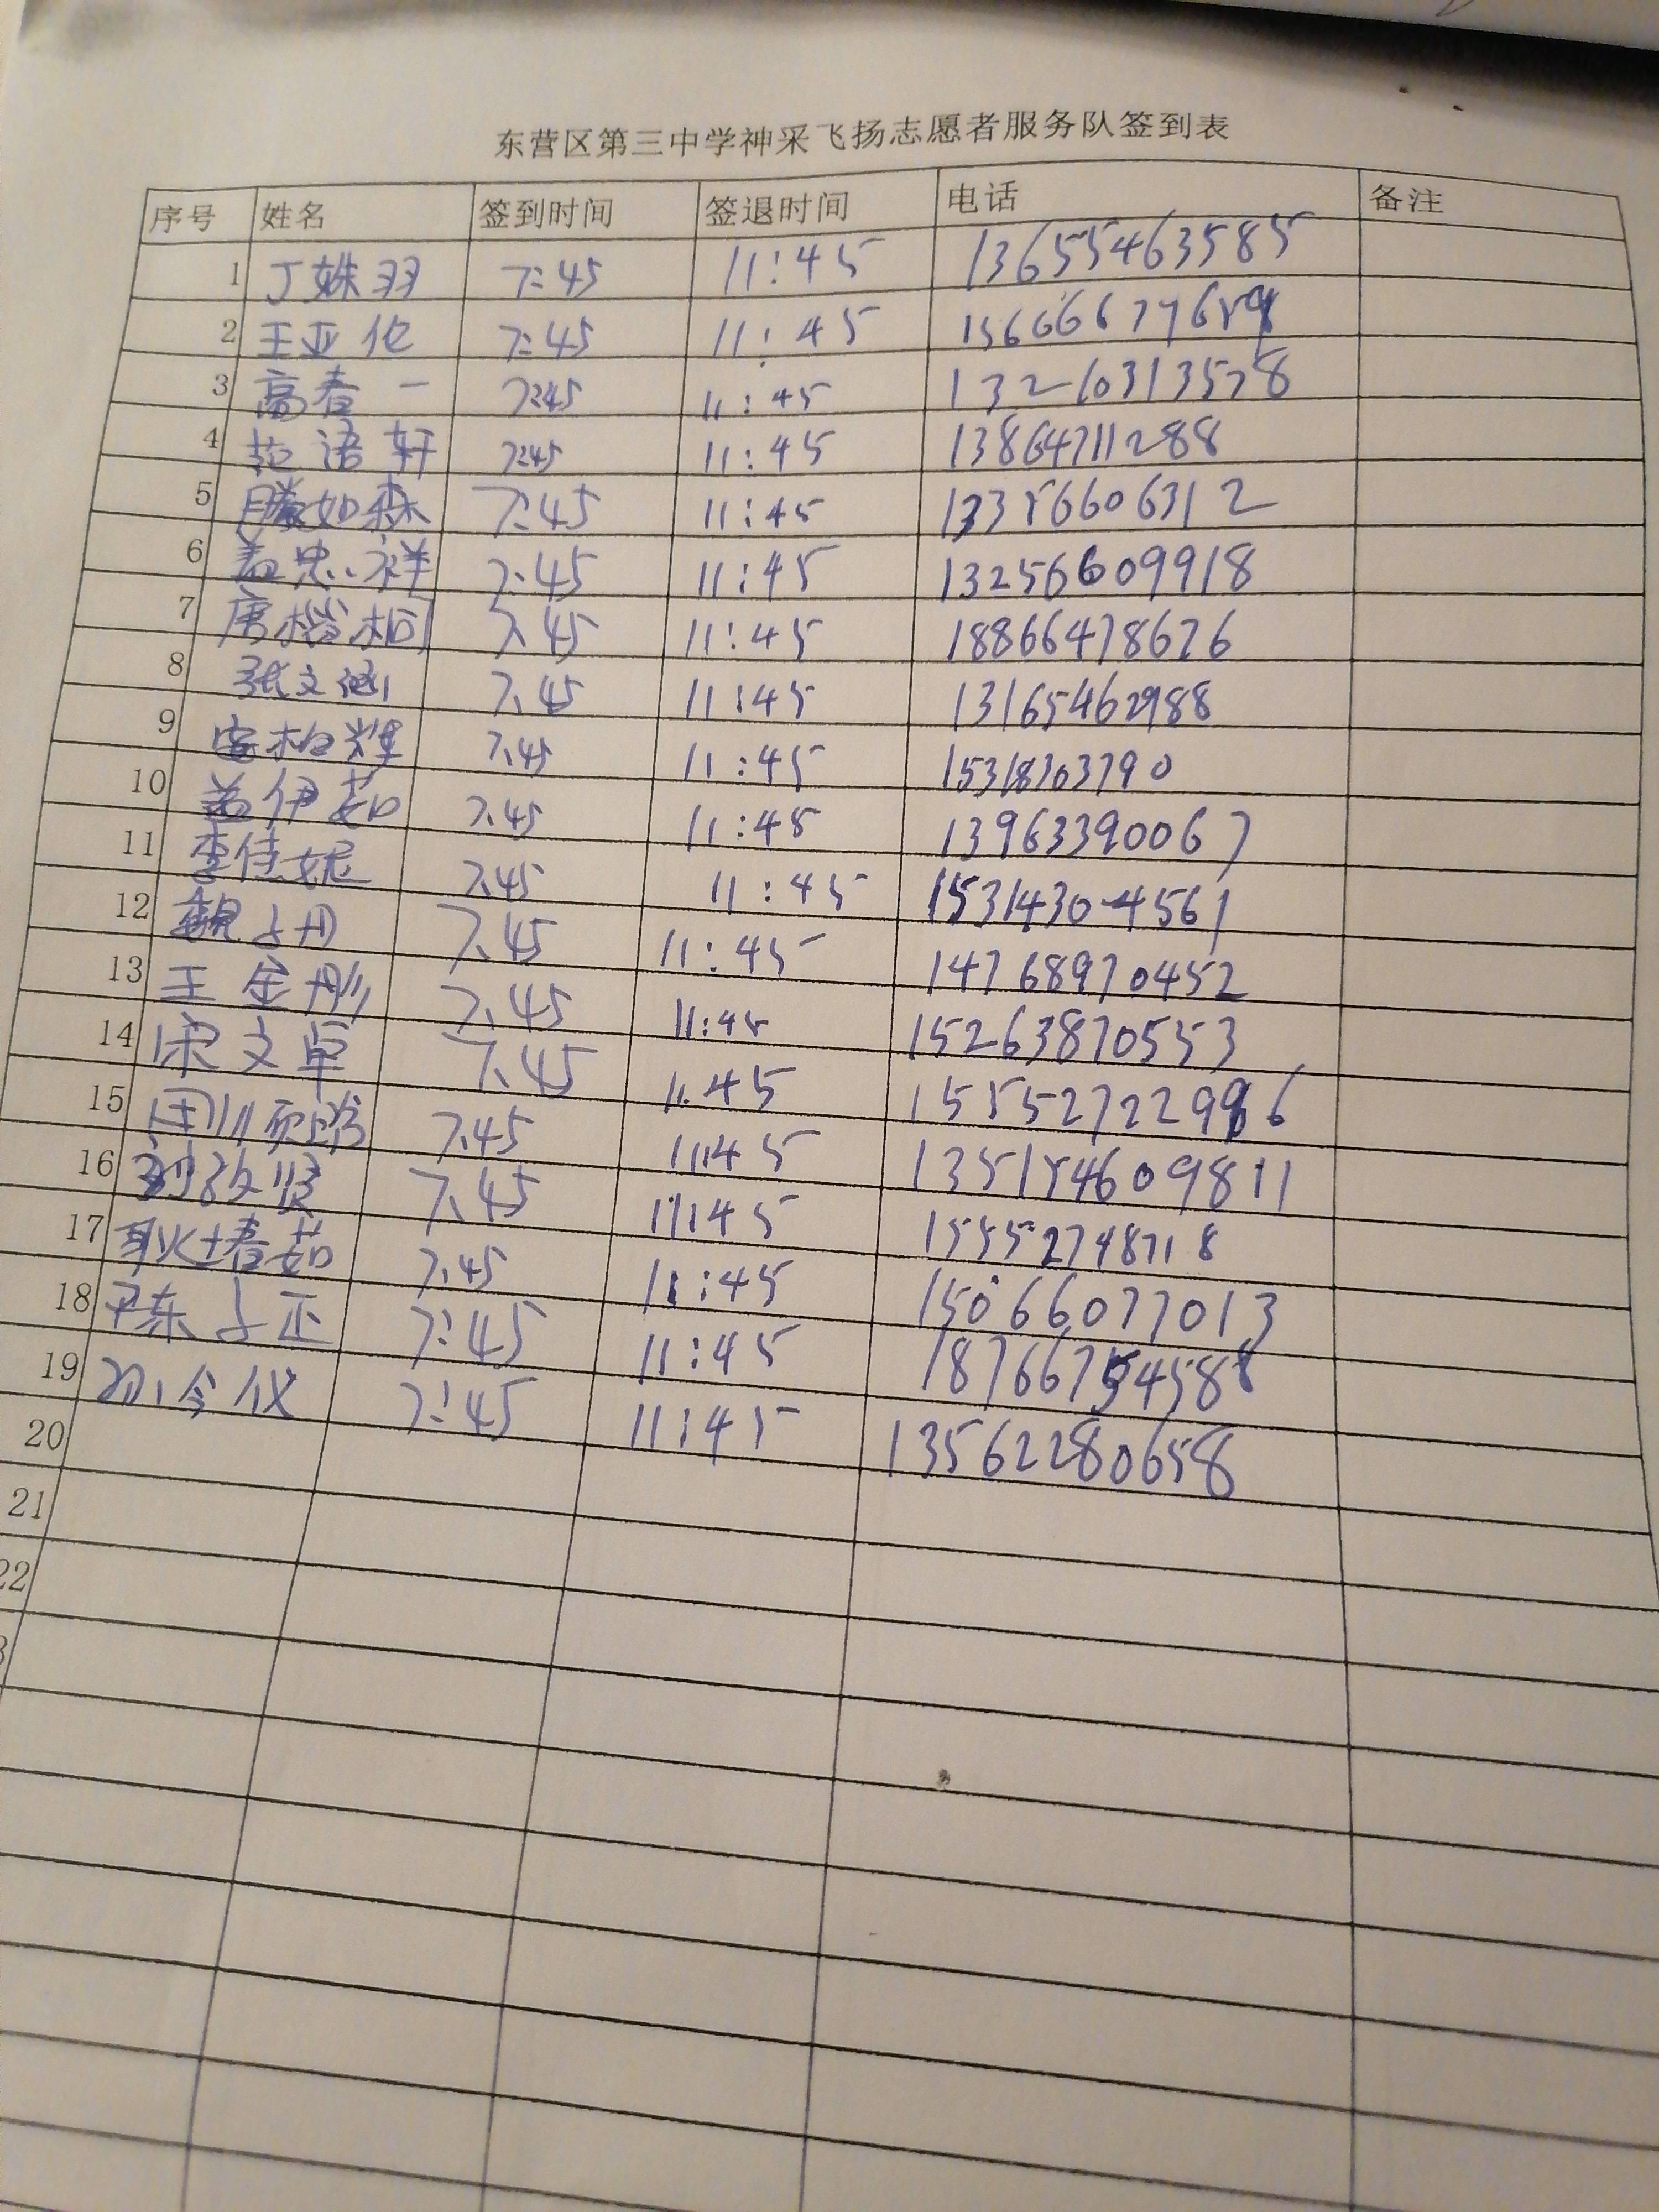 东营区第三中学神采飞扬志愿者服务队签到表
序号 姓名 签到时间 签退时间 电话 备注
1 丁姝羽 7:45 11:45 13655463585
2 王亚伦 7:45 11:45
3 高春一 7:45 11:45 13210313578
4 范语轩 7:45 11:45 13864711288
5 滕如森 7:45 11:45 13356606312
6 盖忠祥 7:45 11:45 13256609918
7 唐楷桐 7.45 11:45 18866478676
8 张文涵 7.45 11:45 13165462988
9 柏辉 7.45 11:45 15318703790
10 盖伊茹 7.45 11:45 13963390067
11 李佳妮 7.45 11:45 15314304561
12 魏丹 7.45 11:45 14768970452
13 王金彤 7.45 11:45 15263870553
14 宋文卓 7.45 11.45
15 7.45 11:45
16 刘政贤 7.45 11:45 15552748718
17 耿春茹 7.45 11:45 15066077013
18 正 7:45 11:45 18766754588
19 孙令仪 7:45 11:45 13562280658
20
21
22